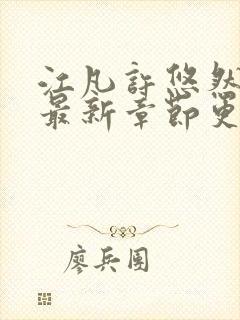 江凡許悠然
最新章節更
廖兵團